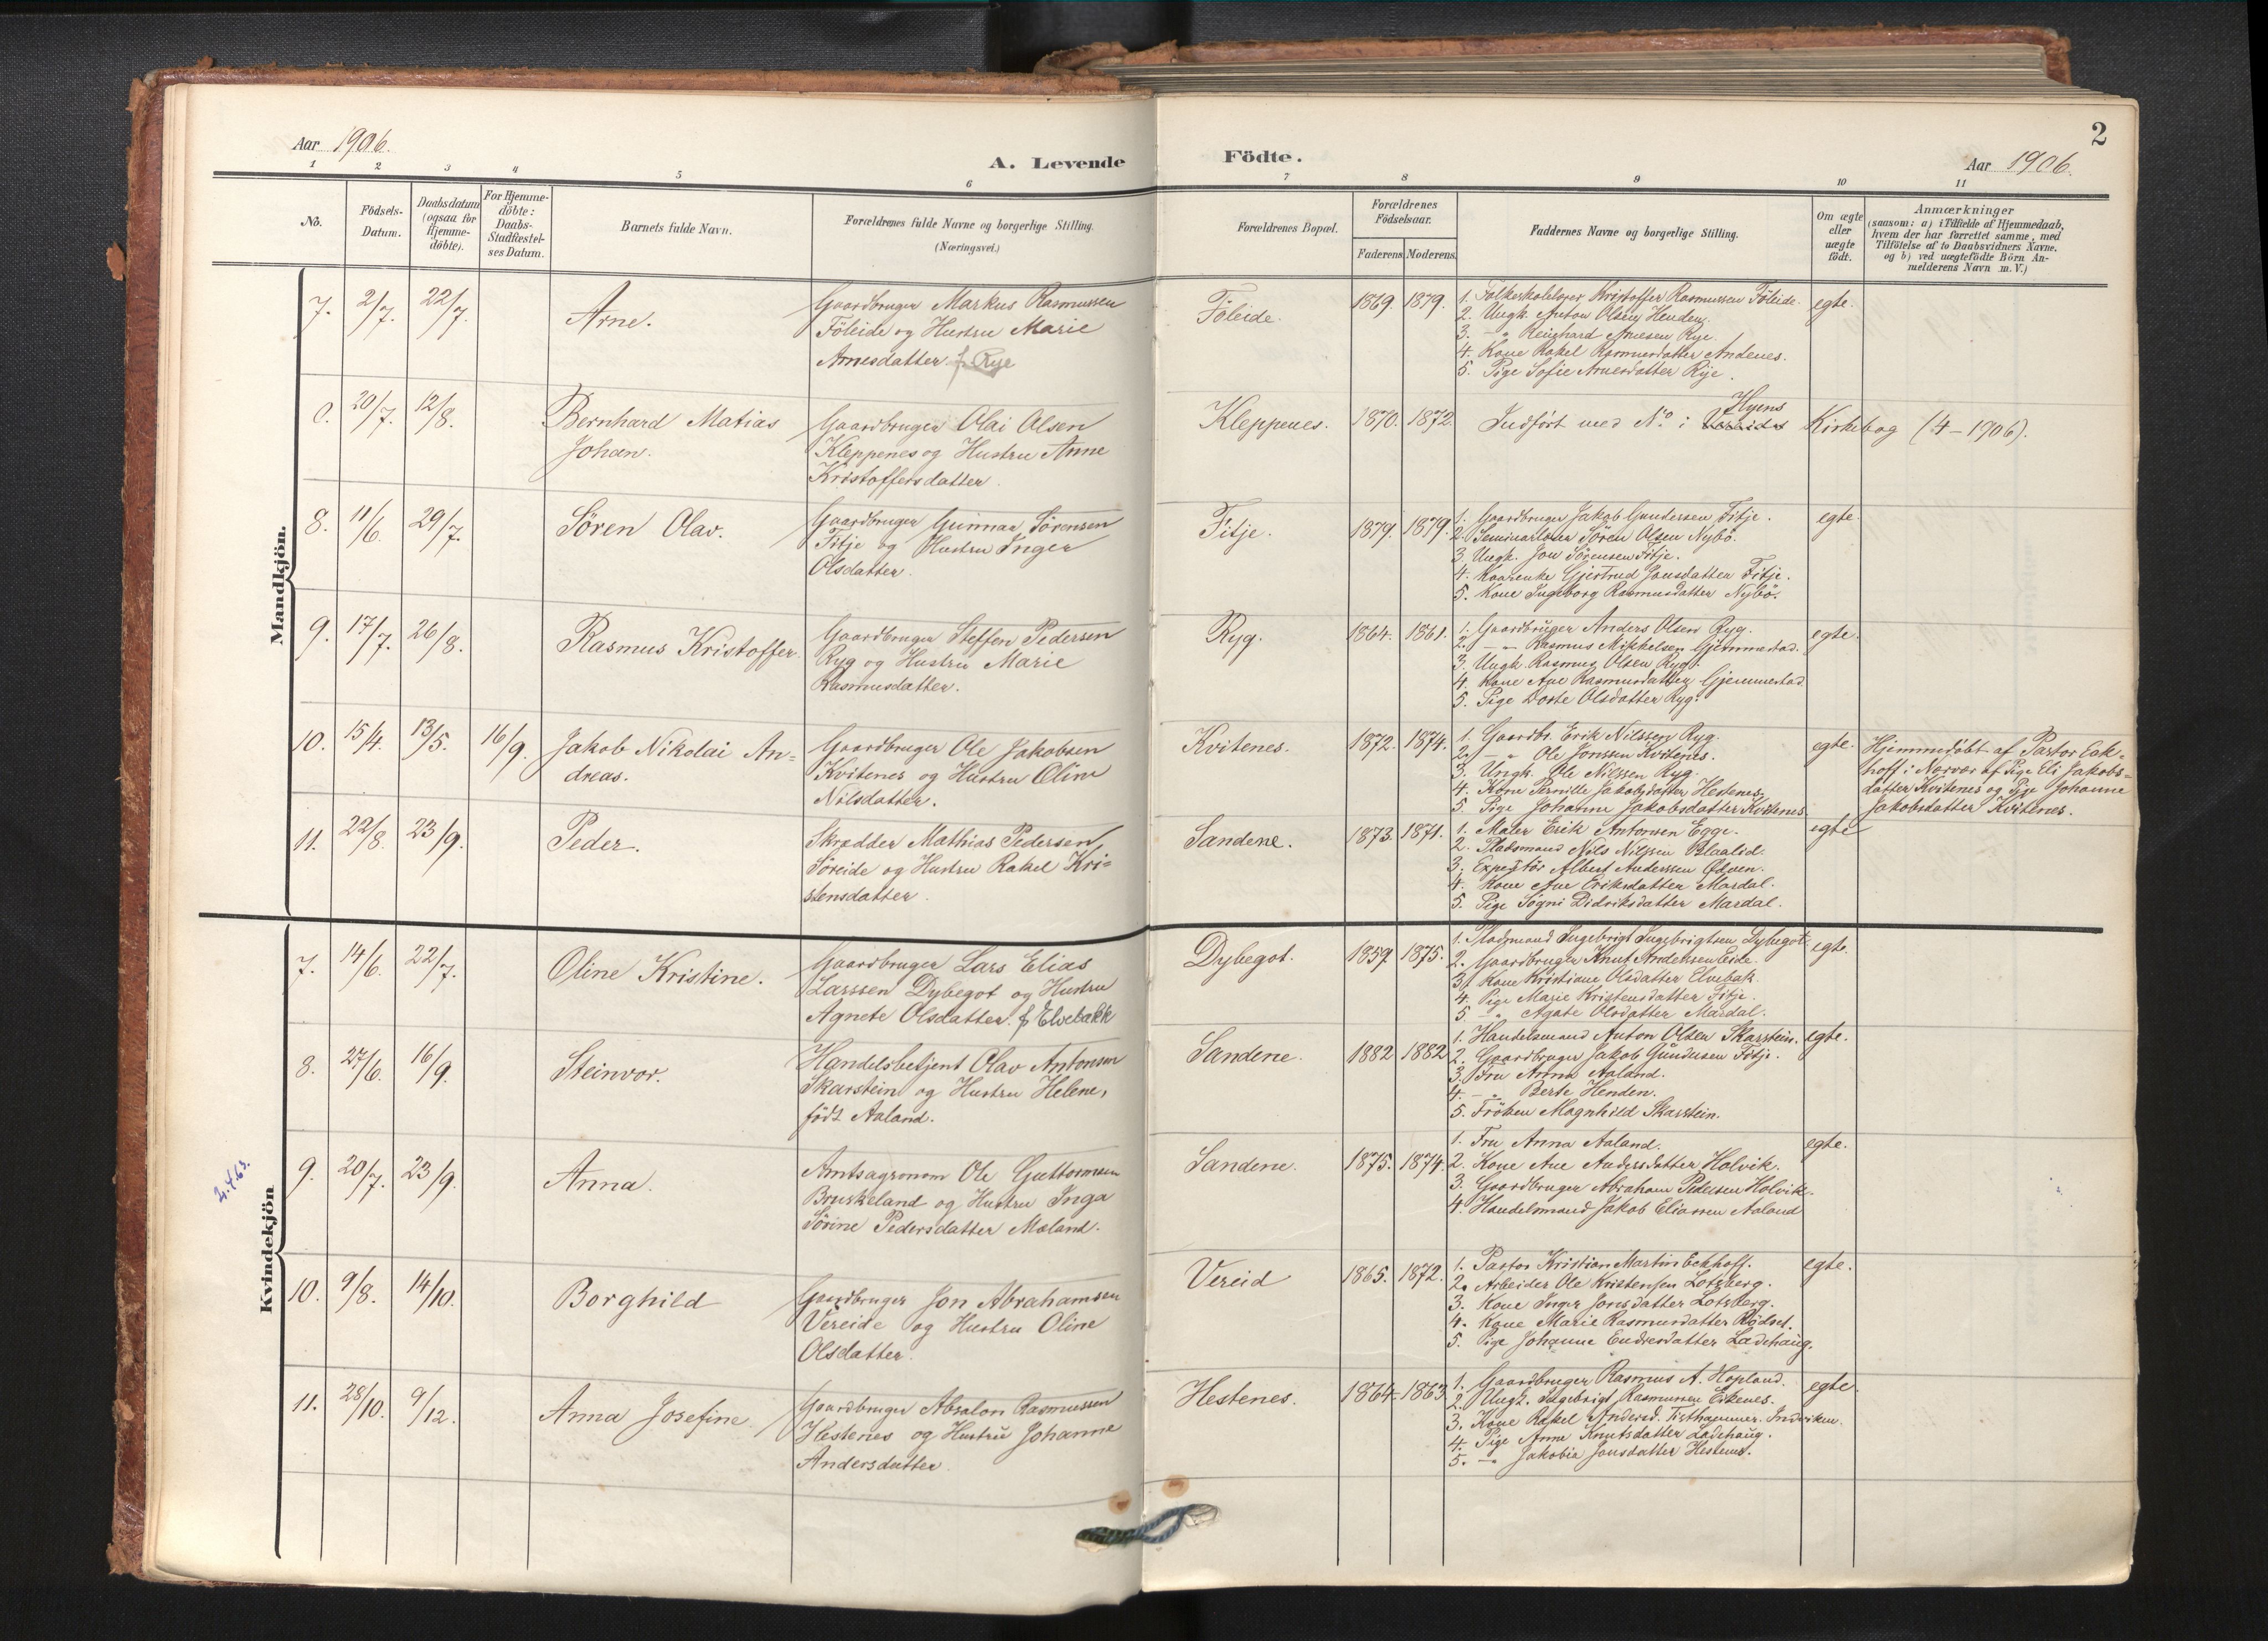 2
Aar 1906.
A. Levende
Födte.
Aar 1906.
1 2 3 4 5 6 7 8 9 10 11
No.
Födsels-
Datum.
Daabsdatum
(ogsaa for
Hjemme-
döbte).
For Hjemme-
döbte:
Daabs-
Stadfæstel-
ses Datum.
Barnets fulde Navn.
Forældrenes fulde Navne og borgerlige Stilling.
(Næringsvei.)
Forældrenes Bopæl.
Forældrenes
Födselsaar.
Faderens Moderens.
Faddernes Navne og borgerlige Stilling.
Om ægte
eller
uægte
födt.
Anmærkninger
(saasom: a) i Tilfælde af Hjemmedaab,
hvem der har forrettet samme, med
Tilföielse af to Daabsvidners Navne.
og b) ved uægtefödte Börn An-
melderens Navn m. V.)
Mandkjön.
7. 2/7. 22/7. Arne.
Gaardbruger Markus Rasmussen
Föleide og Hustru Marie
Arnesdatter f. Rye
Föleide. 1869. 1879.
1. Folkeskolelærer Kristoffer Rasmussen Föleide. egte.
2. Ungk. Anton Olsen Henden.
3. -"- Reinhard Arnesen Rye.
4. Kone Rakel Rasmusdatter Andenes.
5. Pige Sofie Arnesdatter Rye.
0. 20/7. 12/8. Bernhard Matias
Johan.
Gaardbruger Olai Olsen
Kleppenes og Hustru Anne
Kristoffersdatter.
Kleppenes. 1870. 1872.
Hyens
Indfört med No. i Kirkebog (4-1906).
8. 11/6. 29/7. Sören Olav.
Gaardbruger Gunnar Sörensen
Fitje og Hustru Inger
Olsdatter.
Fitje. 1879. 1879.
1. Gaardbruger Jakob Gundersen Fitje. egte.
2. Seminarlærer Sören Olsen Nybö.
3. Ungk. Jon Sörensen Fitje.
4. Kaarenke Gjertrud Jonsdatter Fitje.
5. Kone Ingeborg Rasmusdatter Nybö.
9. 17/7. 26/8. Rasmus Kristoffer.
Gaardbruger Steffen Pedersen
Ryg og Hustru Marie
Rasmusdatter.
Ryg. 1864. 1861.
1. Gaardbruger Anders Olsen Ryg. egte.
2. -"- Rasmus Mikkelsen Gjemmestad.
3. Ungk. Rasmus Olsen Ryg.
4. Kone Ane Rasmusdatter Gjemmestad.
5. Pige Dorte Olsdatter Ryg.
10. 15/4. 13/5. 16/9. Jakob Nikolai An=
dreas.
Gaardbruger Ole Jakobsen
Kvitenes og Hustru Oline
Nilsdatter.
Kvitenes. 1872. 1874.
1. Gaardbr. Erik Nilssen Ryg. egte.
2. -"- Ole Jonssen Kvitenes.
3. Ungk. Ole Nilssen Ryg.
4. Kone Pernille Jakobsdatter Hestenes.
5. Pige Johanne Jakobsdatter Kvitenes.
Hjemmedöbt af Pastor Eck-
hoff i Nærvær af Pige Eli Jakobs=
datter Kvitenes og Pige Johanne
Jakobsdatter Kvitenes.
11. 22/8. 23/9. Peder.
Skrædder Mathias Pedersen
Söreide og Hustru Rakel Kri=
stensdatter.
Sandene. 1873. 1871.
1. Maler Erik Antonsen Egge. egte
2. Pladsmand Nils Nilssen Blaalid.
3. Expeditör Albert Anderssen Ödven.
4. Kone Ane Eriksdatter Mardal.
5. Pige Sögni Didriksdatter Mardal.
Kvindekjön
7. 14/6. 22/7. Oline Kristine.
Gaardbruger Lars Elias
Larssen Dybegot og Hustru
Agnete Olsdatter. f Elvebakk
Dybegot. 1859. 1875.
1. Pladsmand Ingebrigt Ingebrigtsen Dybegot. egte.
2. Gaardbruger Knut Andersen Eide.
3. Kone Kristiane Olsdatter Elvebak.
4. Pige Marie Kristensdatter Fitje.
5. -"- Agate Olsdatter Mardal.
8. 27/6. 16/9. Steinvor.
Handelsbetjent Olav Antonsen
Skarstein og Hustru Helene,
födt Aaland.
Sandene. 1882 1882
1. Handelsmand Anton Olsen Skarstein. egte.
2. Gaardbruger Jakob Gundersen Fitje.
3. Fru Anna Aaland.
4. -"- Berte Henden.
5. Fröken Magnhild Skarstein.
2.4.63.
9. 20/7. 23/9. Anna.
Amtsagronom Ole Guttormsen
Bruskeland og Hustru Inga
Sörine Pedersdatter Mæland.
Sandene. 1875. 1874.
1. Fru Anna Aaland. egte.
2. Kone Ane Andersdatter Holvik.
3. Gaardbruger Abraham Pedersen Holvik.
4. Handelsmand Jakob Eliassen Aaland
10. 9/8. 14/10. Borghild
Gaardbruger Jon Abrahamsen
Vereide og Hustru Oline
Olsdatter.
Vereid 1865. 1872.
1. Pastor Kristian Martin Eckhoff. egte.
2. Arbeider Ole Kristensen Lotsberg.
3. Kone Inger Jonsdatter Lotsberg.
4. Kone Marie Rasmusdatter Rödset.
5. Pige Johanne Endresdatter Ladehaug.
11. 28/10. 9/12. Anna Josefine.
Gaardbruger Absalon Rasmussen
Hestenes og Hustru Johanne
Andersdatter.
Hestenes. 1864. 1863
1. Gaardbruger Rasmus A. Hopland. egte.
2. Ungk. Ingebrigt Rasmussen Eikenes.
3. Kone Rakel Andersd. Tisthammer. Indviken.
4. Pige Anne Knutsdatter Ladehaug.
5. -"- Jakobia Jonsdatter Hestenes.